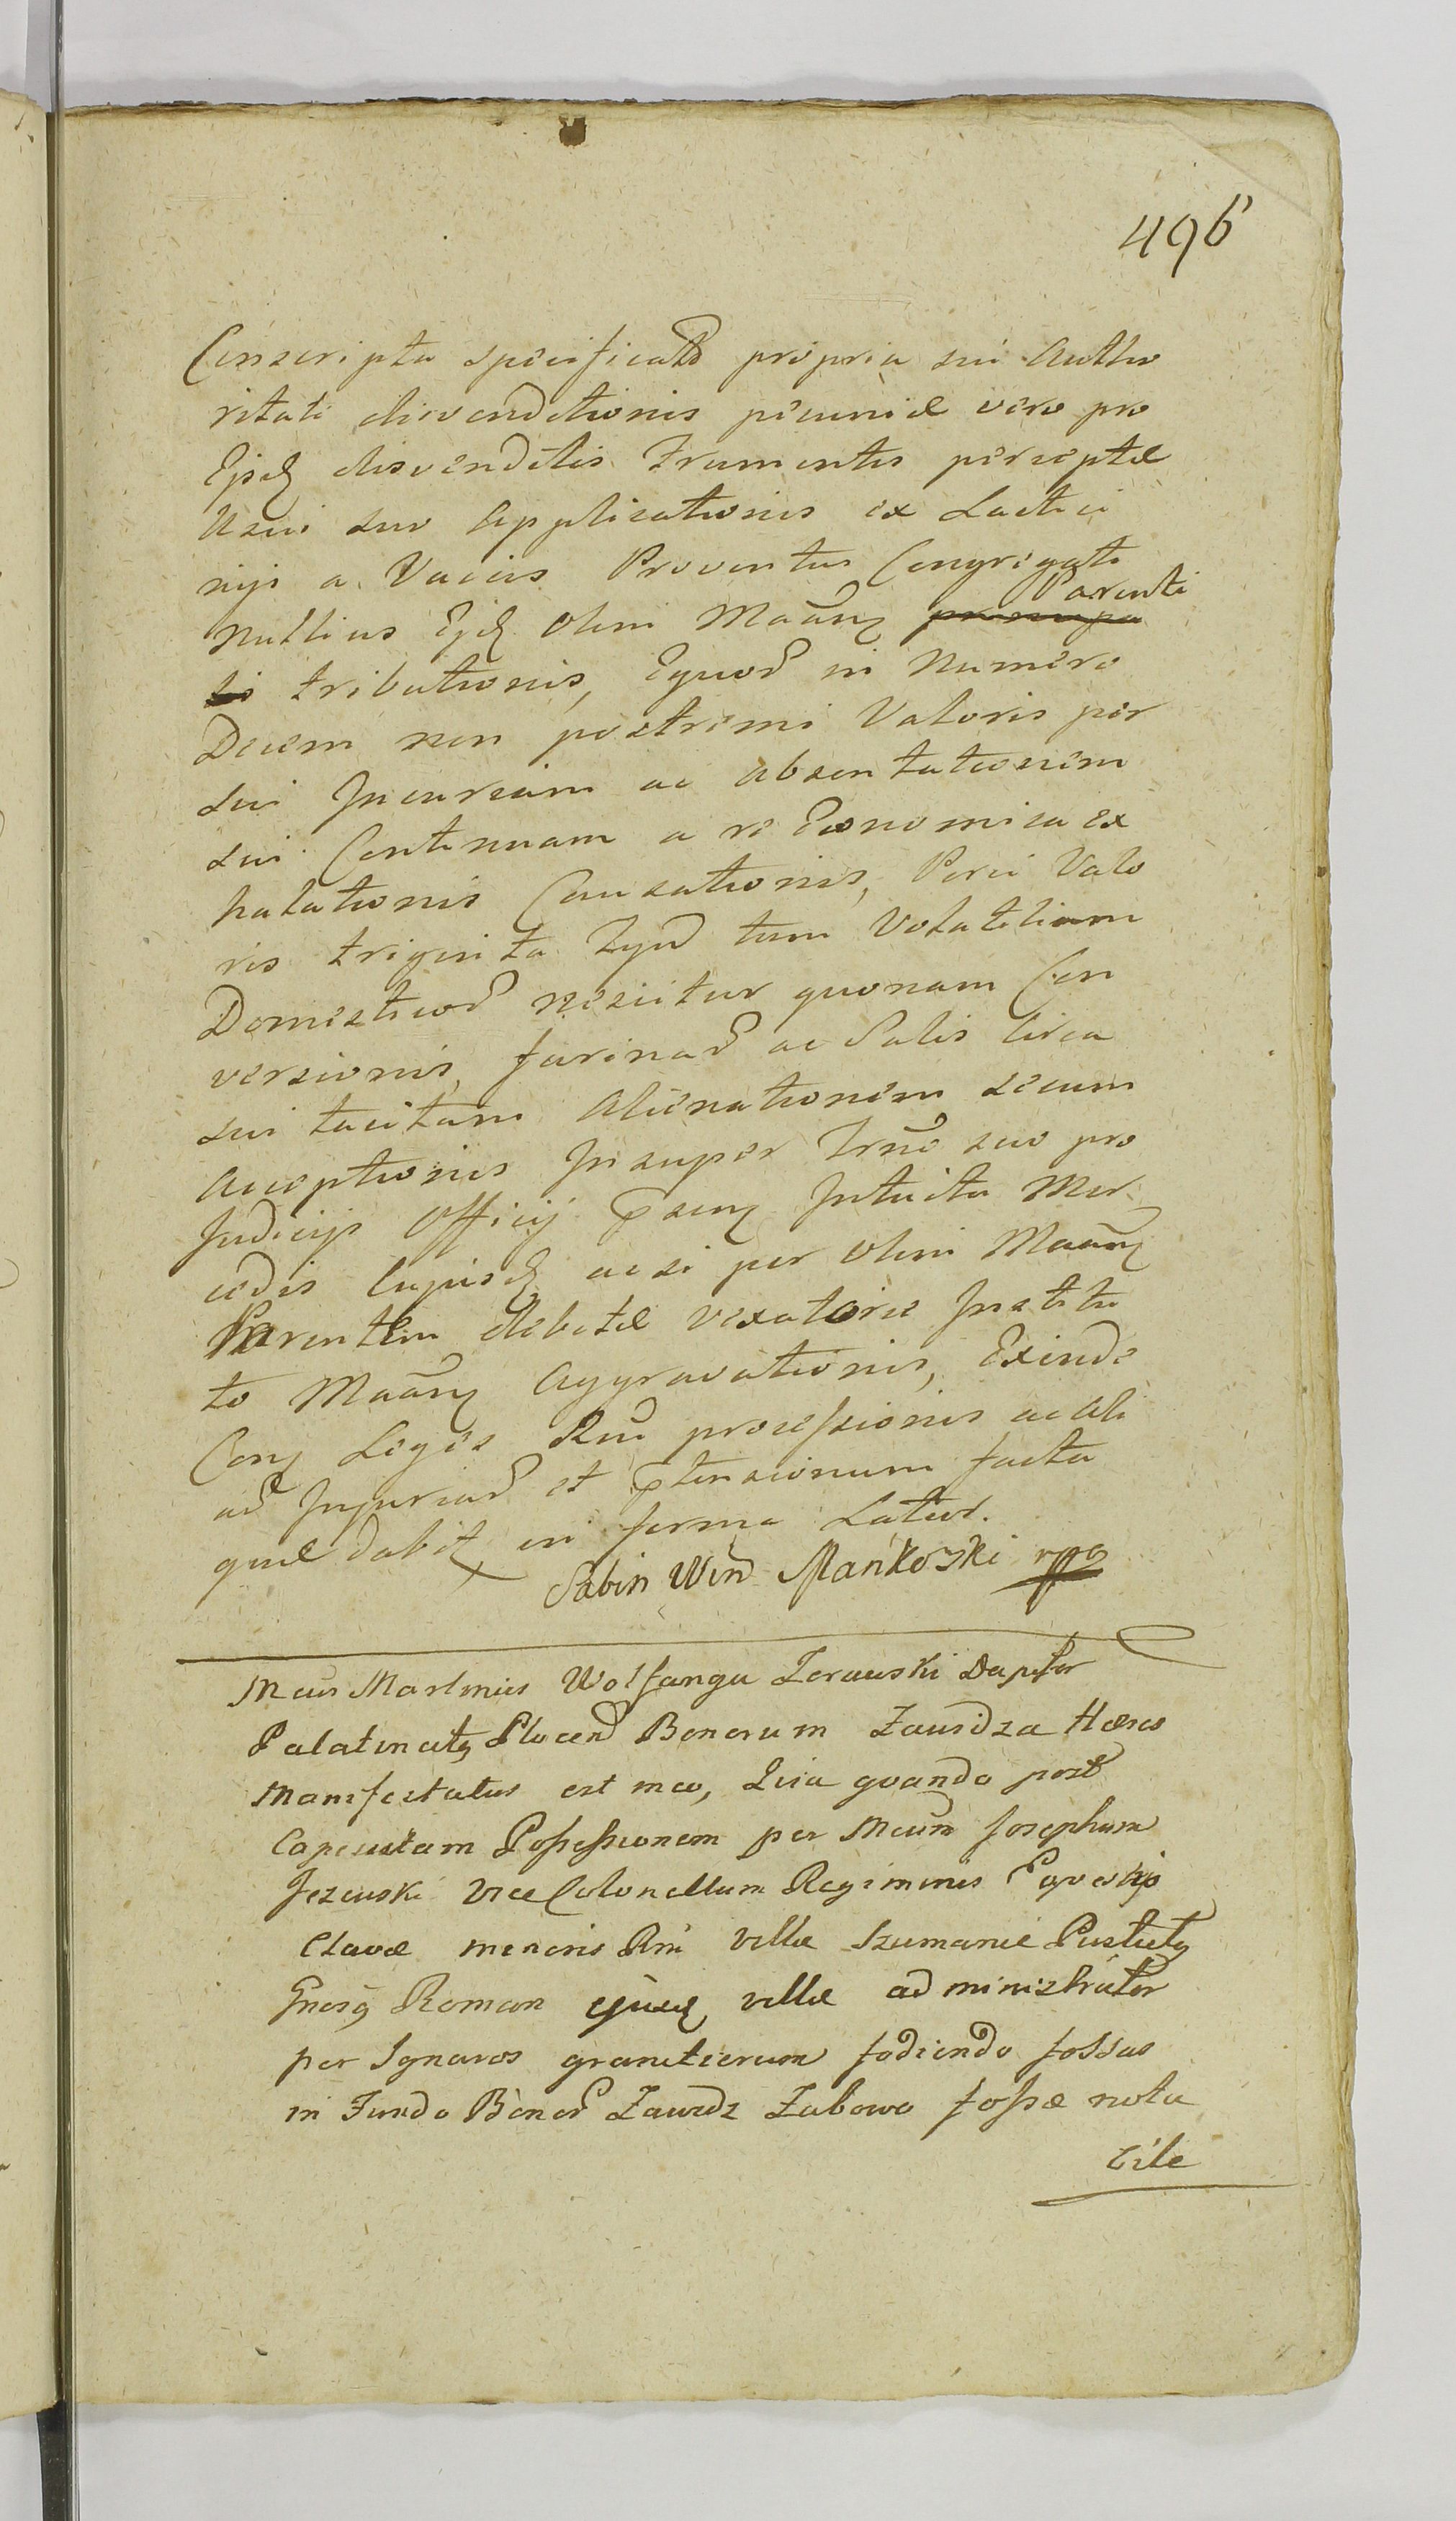 496
Conscripta specificatõ propria sui Autho
ritate disvenditionis pecuniæ vero pro
Ejsdꝫ disvenditis Frumentis perceptæ
Usui suo Applicationis ex Lactici
nijs a Vaccis Proventus Congregati
nullius Ejdꝫ Olim Mãnꝫ Parenti
tributionis, Equor̃ in Numero
Decem non postremi Valoris per
sui Incuriam ac absentationem
sui Continuam a re Economica ex
halationis Causationis, Porci Valo
ris triginta tum Volatilium
Domesticor̃ nescitur quonam Con
versionis, farinar̃ ac Salis circa
sui tacitam Alienationem secum
Acceptionis Insuper Trñe suo pro
Judicijs Officij Intuitu Mer
cedis Cujusdꝫ acsi per Olim Mãnꝫ
Parentem debitæ vexatorie Institu
to Mãnꝫ Aggravationis, Exinde
Conꝫ Leges Rni processionis ac ali
ar̃ Injuriar̃ et p̃tensionum facta
quæ dabit in forma Latior.
Sabin Win Mańkoski mpp
Mcus Martinus Wolfangu Zerauski Dapifer
Palatinatꝫ Plocen̄ Bonorum Zawidza Hæres
Manifestatus est meo, Quia quando post
Capeistam Possessionem per Mcum Josephum
Jezewski Vice Colonellum Regiminis Equestris
Clavæ minoris Rni Villæ Szumanie Pustutꝫ
Gnosꝫ Roman ejusdꝫ villæ administrator
per Ignaros granitierum fodiendo fossas
in Fundo Bonor̃ Zawidz Zabowo fossæ nota
bile